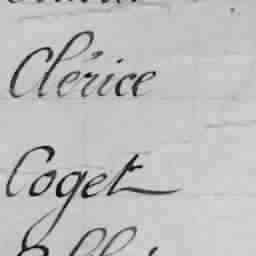 Clérice
Coget